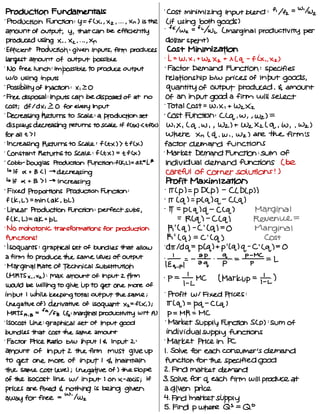 Production Fundamentals
· Production Function: y = f(x₁, x₂, ..., xₙ) is the
amount of output, y, that can be efficiently
produced using x₁, x₂, ..., xₙ
· Efficient Production: given inputs, firm produces
largest amount of output possible
· No Free Lunch: impossible to produce output
w/o using inputs
· Possibility of Inaction: x₁ ≥ 0
· Free Disposal: inputs can be disposed of at no
cost; df/dx₁ ≥ 0 for every input
· Decreasing Returns to Scale: a production set
displays decreasing returns to scale if f(tx) < tf(x)
for all t > 1
· Increasing Returns to Scale: f(tx) > tf(x)
· Constant Returns to Scale: f(tx) = tf(x)
· Cobb-Douglas Production Function: f(K,L) = aKᵅLᵝ
↳ if α + β < 1 → decreasing
↳ if α + β > 1 → increasing
· Fixed Proportions Production Function:
f(K,L) = min{aK, bL}
· Linear Production Function: perfect subs,
f(K,L) = aK + bL
· No monotonic transformations for production
functions!
· Isoquants: graphical set of bundles that allow
a firm to produce the same level of output
· Marginal Rate of Technical Substitution
(MRTS x₁,x₂): max amount of input 2 firm
would be willing to give up to get one more of
input 1 while keeping total output the same;
(negative of) derivative of isoquant x₂ = f(x₁);
MRTS K,L = f₁/f₂ (f₁: marginal productivity wrt x₁)
· Isocost Line: graphical set of input good
bundles that cost the same amount
· Factor Price Ratio b/w Input 1 & Input 2:
amount of input 2 the firm must give up
to get one more of input 1 & maintain
the same cost level; (negative of) the slope
of the isocost line w/ input 1 on x-axis; if
prices are fixed & nothing is being given
away for free = w₁/w₂
· Cost Minimizing Input Blend: f₁/f₂ = w₁/w₂
(if using both goods)
· f₁/w₁ = f₂/w₂ (marginal productivity per
dollar spent)
Cost Minimization
· L = w₁x₁ + w₂x₂ + λ(q - f(x₁, x₂))
· Factor Demand Function: specifies
relationship b/w prices of input goods,
quantity of output produced, & amount
of an input good a firm will select
· Total Cost = w₁x₁ + w₂x₂
· Cost Function: C(q, w₁, w₂) =
w₁x₁(q, w₁, w₂) + w₂x₂(q, w₁, w₂)
where xₙ(q, w₁, w₂) are the firm's
factor demand functions
· Market Demand Function: sum of
individual demand functions (be
careful of corner solutions!)
Profit Maximization
· π(p) = pD(p) - C(D(p))
· π(q) = p(q)q - C(q)
· π = p(q)q - C(q) Marginal
= R(q) - C(q) Revenue =
R'(q) - C'(q) = 0 Marginal
R'(q) = C'(q) Cost
· dπ/dq = p(q) + p'(q)q - C'(q) = 0
· 1/|E_q,p| = - ∂p/∂q · q/p = p-MC/p = L
· P = 1/1-L MC (Markup = 1/1-L)
· Profit w/ Fixed Prices:
π(q) = pq - C(q)
P = MR = MC
· Market Supply Function S(p): sum of
individual supply functions
· Market Price in PC
1. Solve for each consumer's demand
function for the specified good
2. Find market demand
3. Solve for q each firm will produce at
a given price
4. Find market supply
5. Find p where Qˢ = Qᴰ